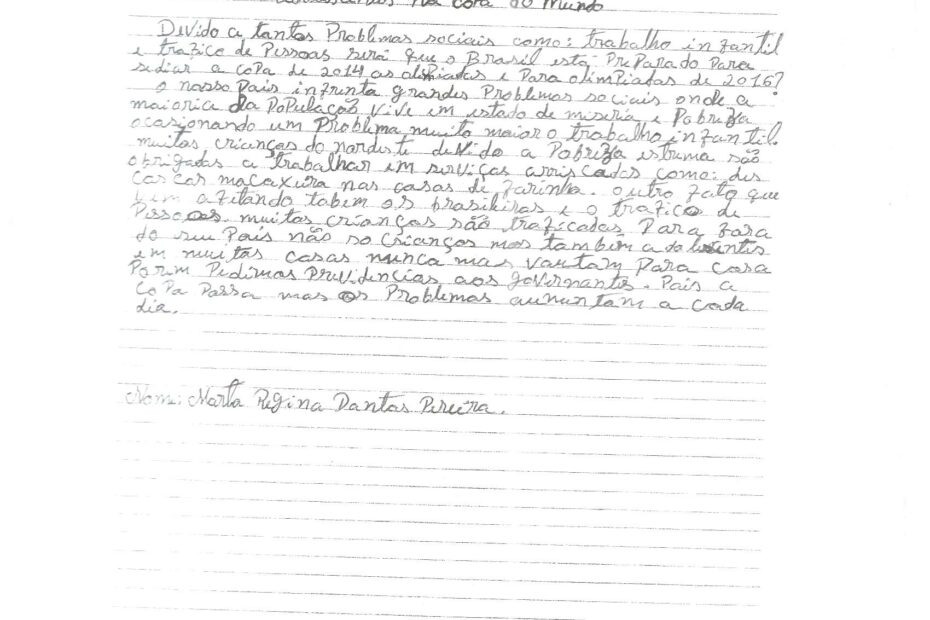 na copa do mundo
Devido a tantos Problemas sociais como: trabalho infantil
e trafico de Pessoas será que o Brasil esta PreParado Para
sediar a coPa de 2014 as olimpiadas e Para olimPiadas de 2016?
o nosso Pais infrenta grandes Problemas sociais onde a
maioria da PoPulação vive em estado de miseria e Pobreza
ocasionando um Problema muito maior o trabalho infantil.
muitas crianças do nordeste devido a Pobreza estrema são
obrigadas a trabalhar em serviços arriscados como: des
cascar macaxeira nas casas de farinha. outro fato que
vem afetando tabem os brasileiras e o trafico de
Pessoas. muitas crianças são traficadas Para fora
do seu Pais não so crianças mas tambem adolesentes
em muitas casas nunca mas vautam Para casa
Porem Pedimos Previdencias aos governantes. Pois a
coPa Passa mas os Problemas aumuntam a cada
dia.
Nome: Marta Regina Dantas Pereira.